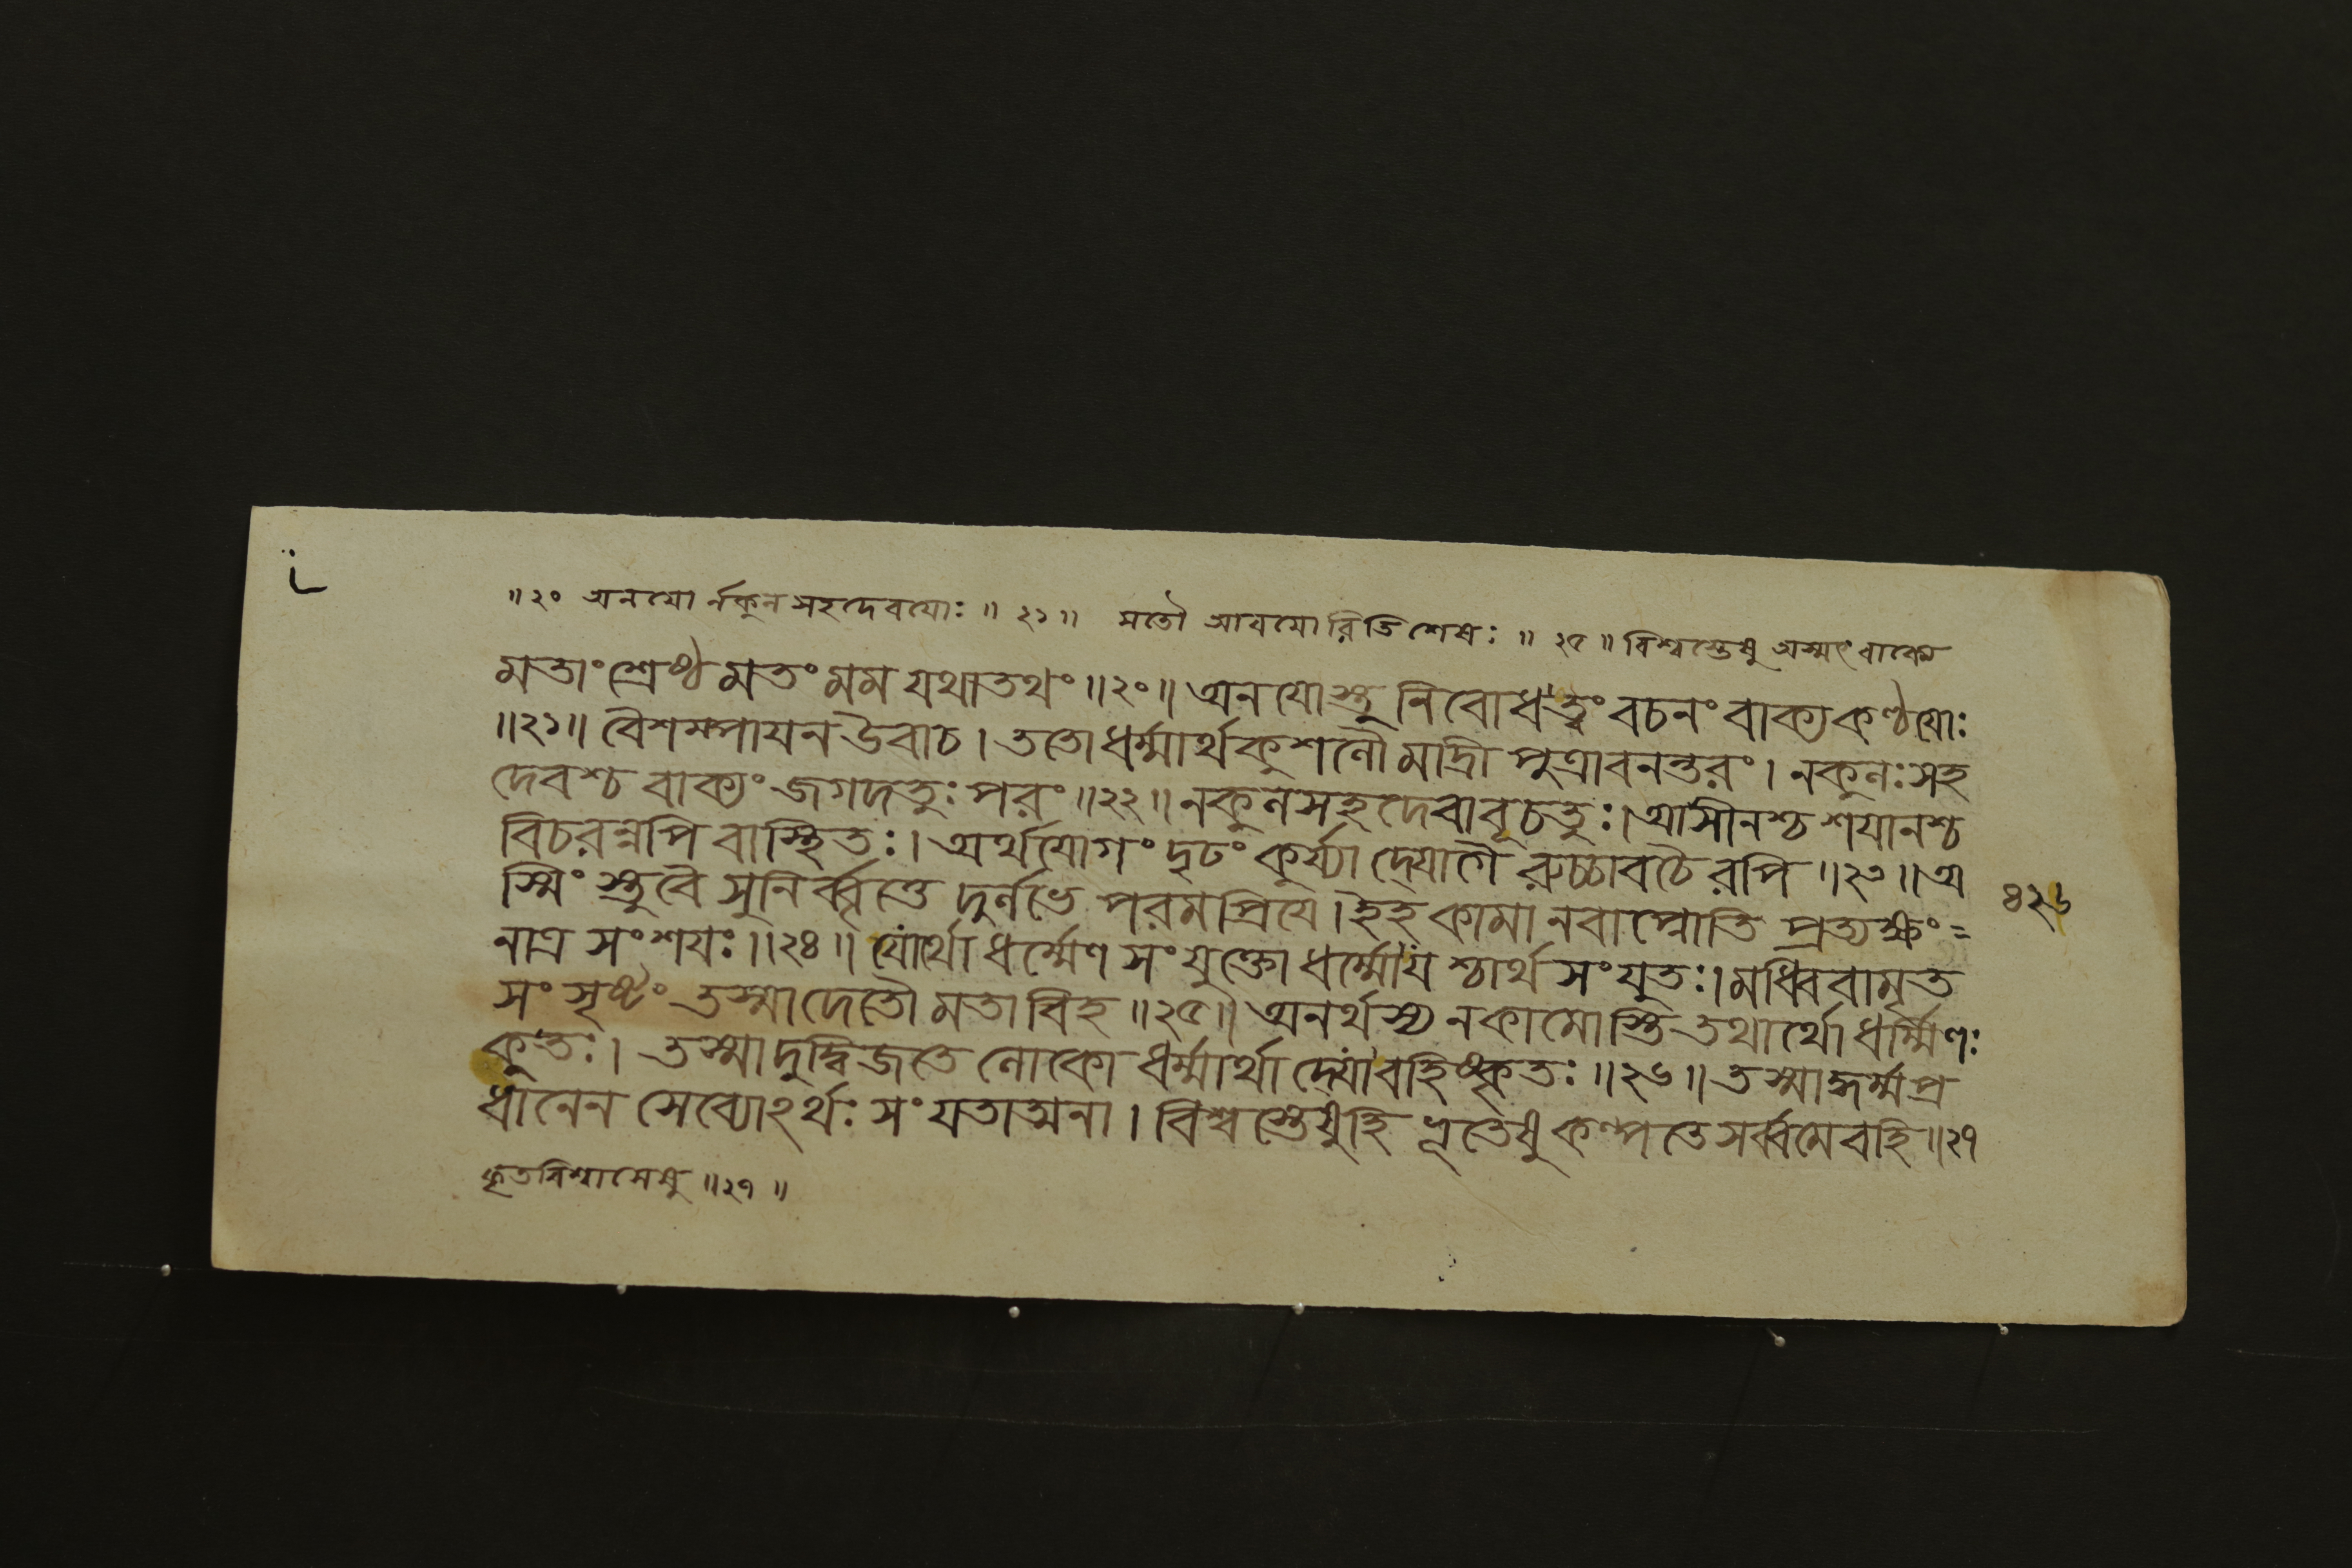 ॥২০ অনয়োর্নকুলসহদেবয়োঃ॥২১॥ মতৌ আবয়োরিতিশেষঃ॥২৫॥বিশ্বস্তেষু অস্মৎবাক্যে
মতাং শ্রেষ্ঠ মতং মম যথাতথং॥২০॥অনযোস্তু নিবোধত্বং বচনং বাক্যকণ্ঠযোঃ
॥২১॥ বৈশম্পাযন উবাচ। ততো ধর্ম্মার্থকুশলৌ মাদ্রী পুত্রাবনন্তরং। নকুলঃ সহ
দেবশ্চ বাক্যং জগদতুঃ পরং॥২২॥নকুলসহদেবাবূচতুঃ।আসীনশ্চ শযানশ্চ
বিচরন্নপি বাস্থিতঃ। অর্থযোগং দৃঢং কুর্য্যাদ্যোগৈরুচ্চাবচৈরপি॥২৩॥অ
স্মিংস্তু বৈ সুনির্ব্বৃত্তে দুর্লভে পরমপ্রিযে।ইহ কামানবাপ্নোতি প্রত্যক্ষং=
নাত্র সংশযঃ॥২৪॥ যোর্থো ধর্ম্মেণ সংযুক্তো ধর্ম্মো যশ্চার্থ সংযুতঃ।মধ্বিবামৃত
সং সৃষ্টং তস্মাদেতৌ মতাবিহ॥২৫॥অনর্থস্য ন কামোস্তি তথার্থোধর্ম্মিণঃ
কুতঃ। তস্মাদুদ্বিজতে লোকো ধর্ম্মার্থাদ্যো বহিষ্কৃতঃ॥২৬॥তস্মাদ্ধর্ম্মপ্র
ধানেন সেব্যোঽর্থঃ সংযতাত্মনা। বিশ্বস্তেষুহি ভূতেষু কল্পতে সর্ব্বমেবহি॥২৭
কৃতবিশ্বাসেষু॥২৭॥
৪২৬